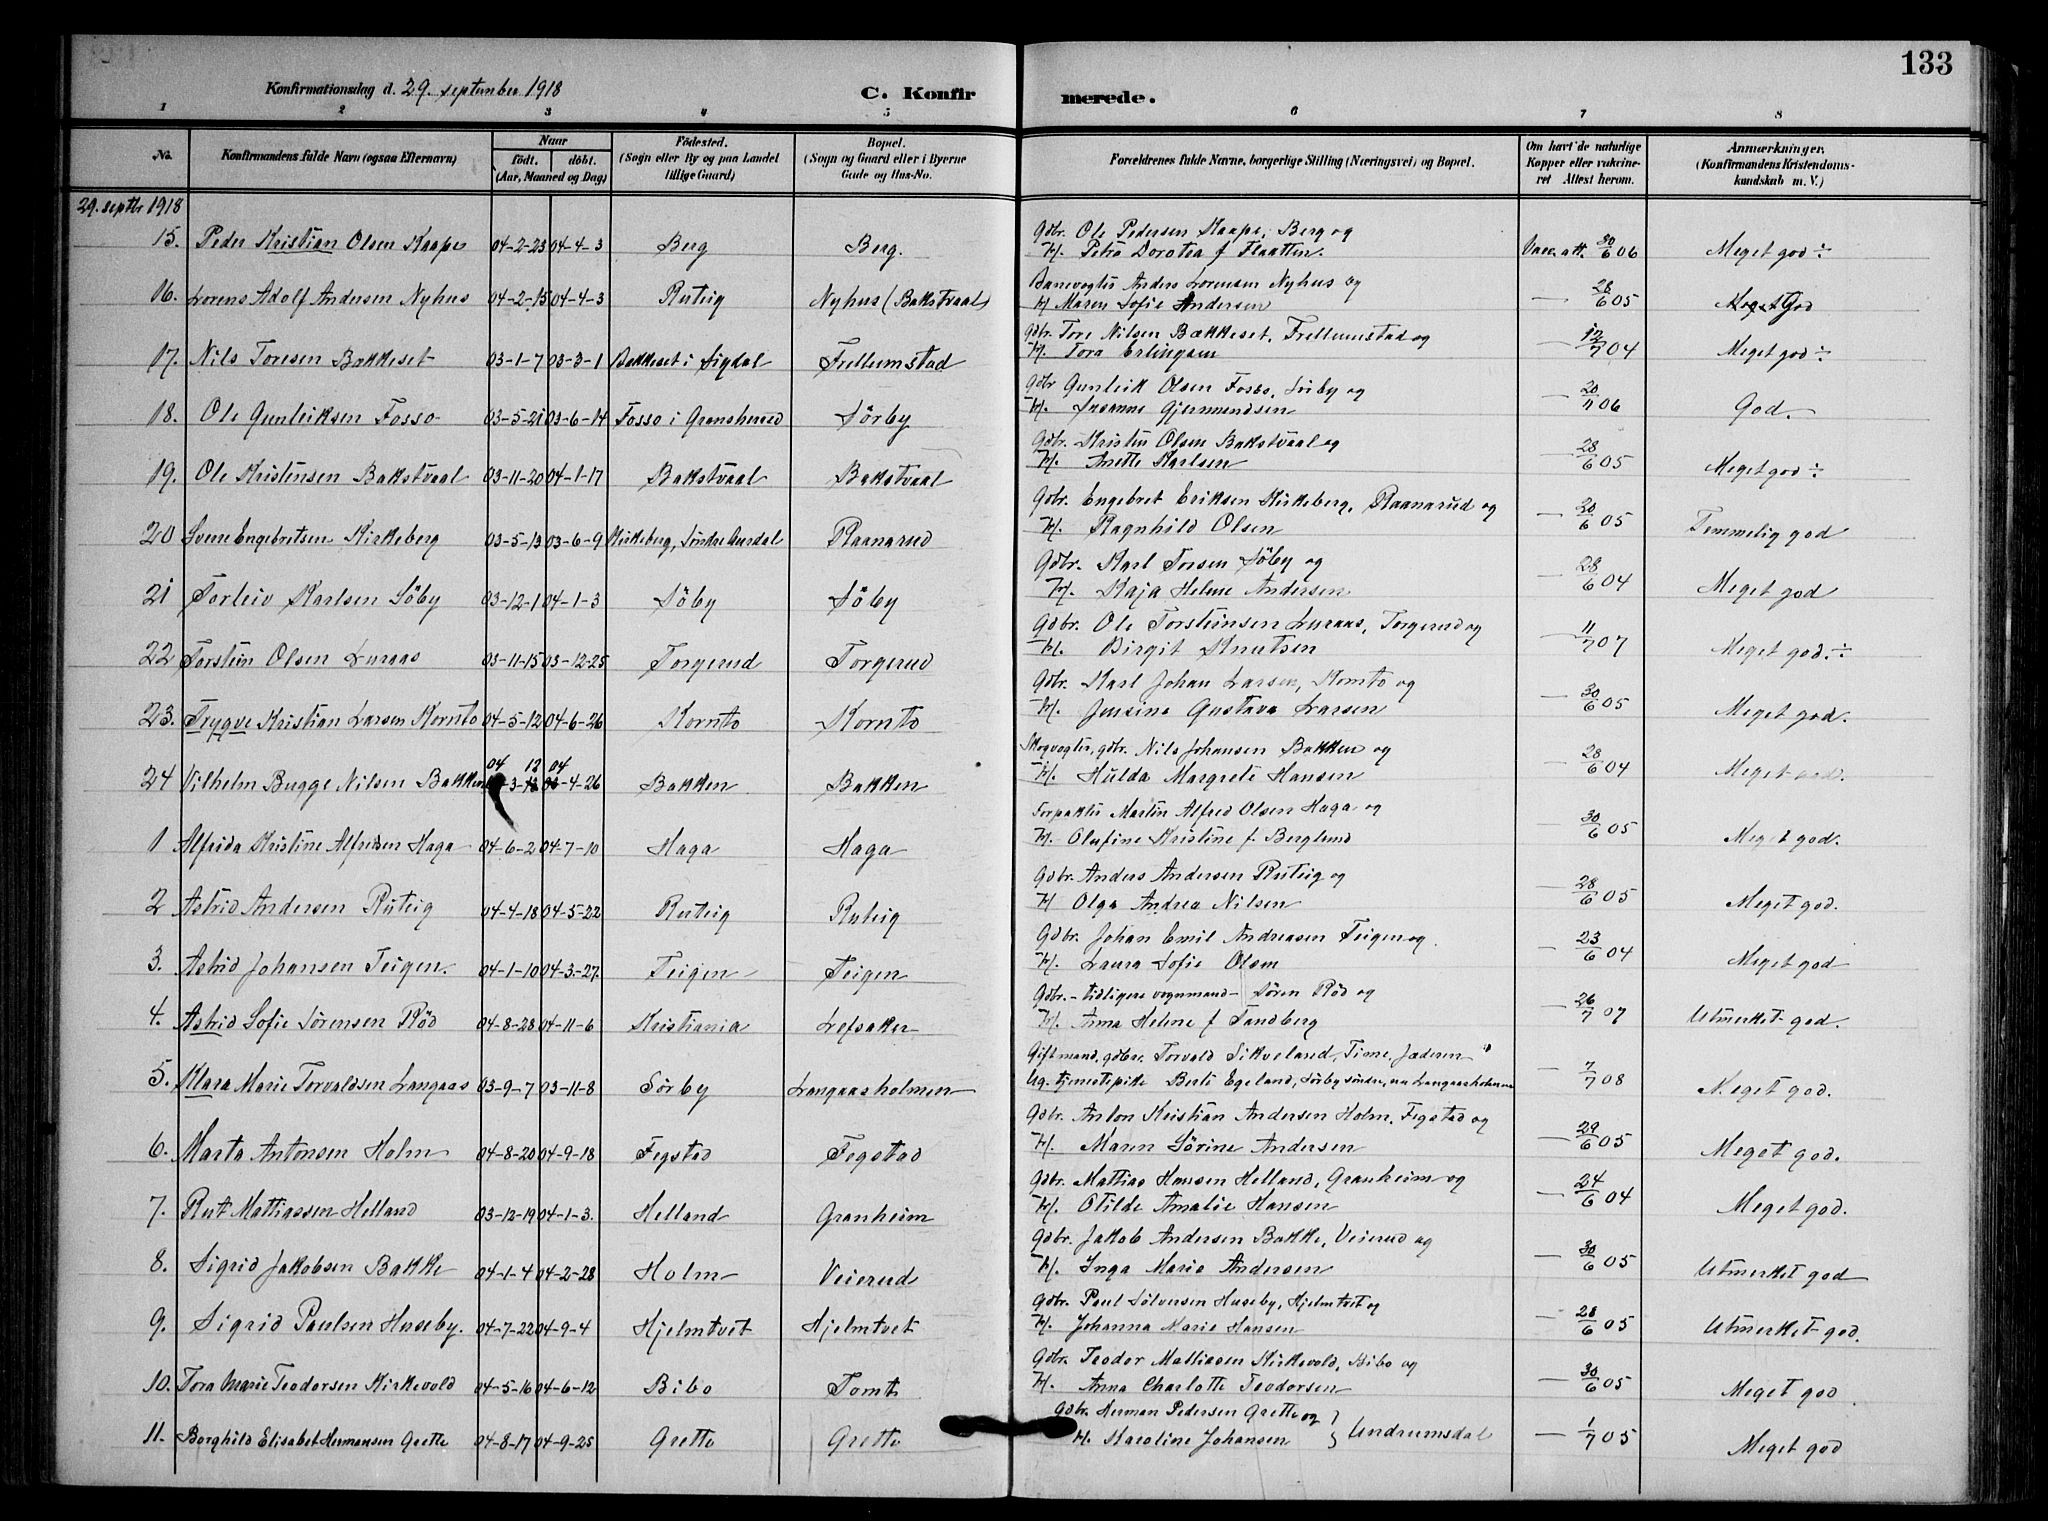 133
Konfirmationsdag d. 29. september 1918 C. Konfirmerede.
1 2 3 4 5 6 7 8
No. Konfirmandens fulde Navn (ogsaa Efternavn) Naar födt. döbt. (Aar, Maaned og Dag) Födested. (Sogn eller By og paa Landet tillige Gaard) Bopæl. (Sogn og Gaard eller i Byerne Gade og Hus-No. Forældrenes fulde Navne, borgerlige Stilling (Næringsvei) og Bopæl. Om havt de naturlige Kopper eller vaccineret Attest herom. Anmærkninger. (Konfirmandens Kristendomskundskab m. V.)
29. septbr 1918
15. Peder Kristian Olsen Kaape 04-2-23 04-4-3 Berg Berg. Gdbr. Ole Pedersen Kaape, Berg og Vacc. att. 30/6 06 Meget god ÷
H. Petra Dorotea f Flaatten.
16. Lorens Adolf Andersen Nyhus 04-2-15 04-4-3 Ruteig Nyhus (Bakstvaal) Banevogter Anders Lorensen Nyhus og — 28/6 05 God
H Maren Sofie Andersen
17. Nils Toresen Bakkeset 03-1-7 03-3-1 Bakkeset i Sigdal Trellumstad Gdbr. Tore Nilsen Bækkeset, Trellumstad og — 12/7 04 Meget god ÷
H. Tora Erlingsen
18. Ole Gunleiksen Fosso 03-5-21 03-6-14 Fosso i Gransherred Sörby Gdbr Gunleik Olsen Fosso, Sörby og — 20/7 06 God.
H. Susanne Gjermundsen
19. Ole Kristensen Bakstvaal 03-11-20 04-1-17 Bakstvaal Bakstvaal Gdbr. Kristen Olsen Bakstvaal og — 28/6 05 Meget god ÷
H. Anette Karlsen
20 Svene Engebretsen Kirkeberg 03-5-13 03-6-9 Kirkeberg, Söndre Aurdal Raanarud Gdbr. Engebret Eriksen Kirkeberg, Raanarud og — 20/6 05 Temmelig god
H. Ragnhild Olsen
21 Torleiv Karlsen Söby 03-12-1 04-1-3 Söby Söby Gdbr. Karl Torsen Söby og — 28/6 04 Meget god
H. Kaja Helene Andersen
22 Torstein Olsen Luraas 03-11-15 03-12-25 Torgerud Torgerud Gdbr. Ole Torsteinsen Luraas, Torgerud og — 11/7 07 Meget god. ÷
H. Birgit Knutsen
23. Trygve Kristian Larsen Kornto 04-5-12 04-6-26 Kornto Kornto Gdbr. Karl Johan Larsen, Kornto og — 30/6 05 Meget god.
H. Jensine Gustava Larsen
24 Vilhelm Bugge Nilsen Bakken 04-3-12 04-4-26 Bakken Bakken Skogvogter, gdbr. Nils Johansen Bakken og — 28/6 04 Meget god.
H. Hulda Margrete Hansen
1 Alfrida Kristine Alfredsen Haga 04-6-2 04-7-10 Haga Haga Forpakter Martin Alfred Olsen Haga og — 30/6 05 Meget god.
H. Olufine Kristine f. Berglund
2 Astrid Andersen Ruteig 04-4-18 04-5-22 Ruteig Ruteig Gdbr. Anders Andersen Ruteig og — 28/6 05 Meget god.
H Olga Andrea Nilsen
3. Astrid Johansen Teigen. 04-1-10 04-3-27. Teigen Teigen Gdbr. Johan Emil Andreasen Teigen og — 23/6 04 Meget god
H. Laura Sofie Olsen
4. Astrid Sofie Sörensen Röd 04-8-28 04-11-6 Kristiania Lefsaker Gdbr. - tidligere vognmand - Sören Röd og — 26/7 07 Utmerket god.
H. Anna Helene f Tandberg
5. Klara Marie Torvaldsen Langaas 03-9-7 03-11-8 Sörby Langaasholmen Gift mand, gdbr. Torvald Sikveland, Time, Jæderen — 7/7 08 Meget god.
Ug. tjenestepike Berte Egeland, Sörby söndre, nu Langaasholmen
6. Marta Antonsen Holm 04-8-20 04-9-18 Fegstad Fegstad Gdbr. Anton Kristian Andersen Holm, Fegstad og — 29/6 05 Meget god.
H. Maren Sörine Andersen
7. Rut Mathiassen Helland 03-12-19 04-1-3. Helland Granheim Gdbr. Mathias Hansen Helland, Granheim og — 24/6 04 Meget god.
H. Otilde Amalie Hansen
8. Sigrid Jakobsen Bakke 04-1-4 04-2-28 Holm Veierud Gdbr. Jakob Andersen Bakke, Veierud og — 30/6 05 Utmerket god
H. Inga Marie Andersen
9. Sigrid Paulsen Huseby. 04-7-22 04-9-4 Hjelmtvet Hjelmtvet Gdbr. Paul Sölvesen Huseby, Hjelmtvet og — 28/6 05 Utmerket god.
H. Johanna Marie Hansen
10. Tora Marie Teodorsen Kirkevold 04-5-16 04-6-12 Bibo Tomt Gdbr. Teodor Mathiasen Kirkevold, Bibo og — 30/6 05 Meget god
H. Anna Charlotte Teodorsen
11. Borghild Elisabet Hermansen Grette 04-8-17 04-9-25 Grette Grette Gdbr. Herman Pedersen Grette og } Undrumsdal — 1/7 05 Meget god
H. Karoline Johansen